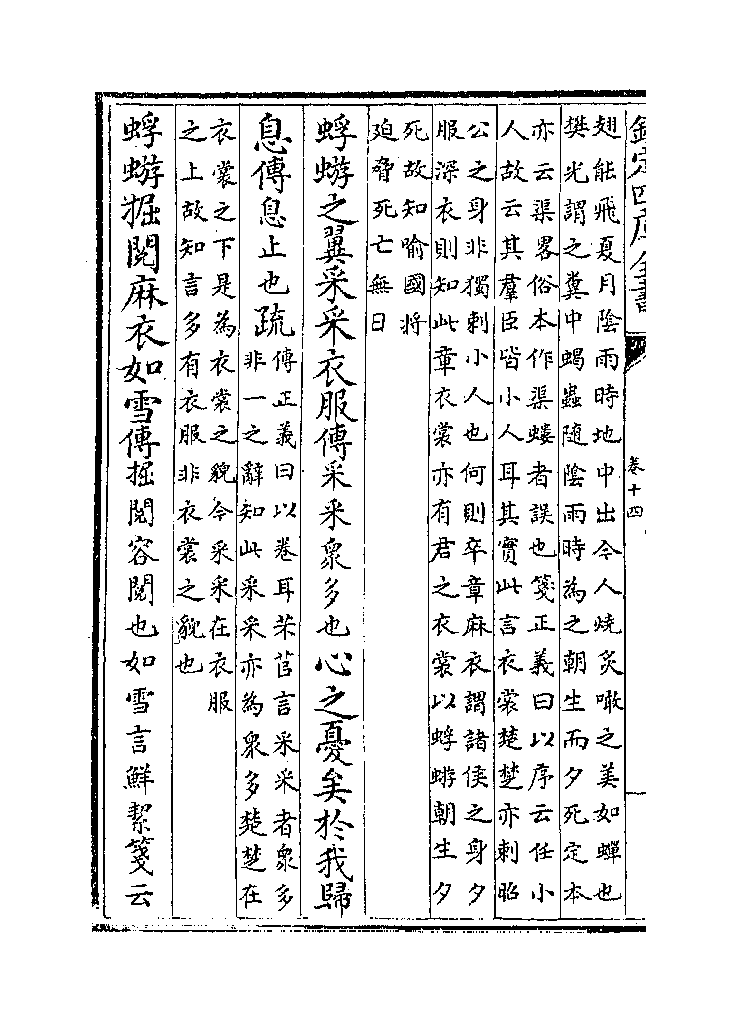 欽定四庫全書
卷十四
翅能飛夏月陰雨時地中出今人燒炙噉之美如蟬也
樊光謂之糞中蝎蟲隨陰雨時為之朝生而夕死定本
亦云渠畧俗本作渠螻者誤也箋正義曰以序云任小
人故云其羣臣皆小人耳其實此言衣裳楚楚亦刺昭
公之身非獨刺小人也何則卒章麻衣謂諸侯之身夕
服深衣則知此章衣裳亦有君之衣裳以蜉蝣朝生夕
死故知喻國將
迫脅死亡無日
蜉蝣之翼采采衣服傳采采衆多也心之憂矣於我歸
息傳息止也疏
傳正義曰以卷耳芣苢言采采者衆多
非一之辭知此采采亦為衆多楚楚在
衣裳之下是為衣裳之貌今采采在衣服
之上故知言多有衣服非衣裳之貌也
蜉蝣掘閱麻衣如雪傳掘閱容閱也如雪言鮮絜箋云